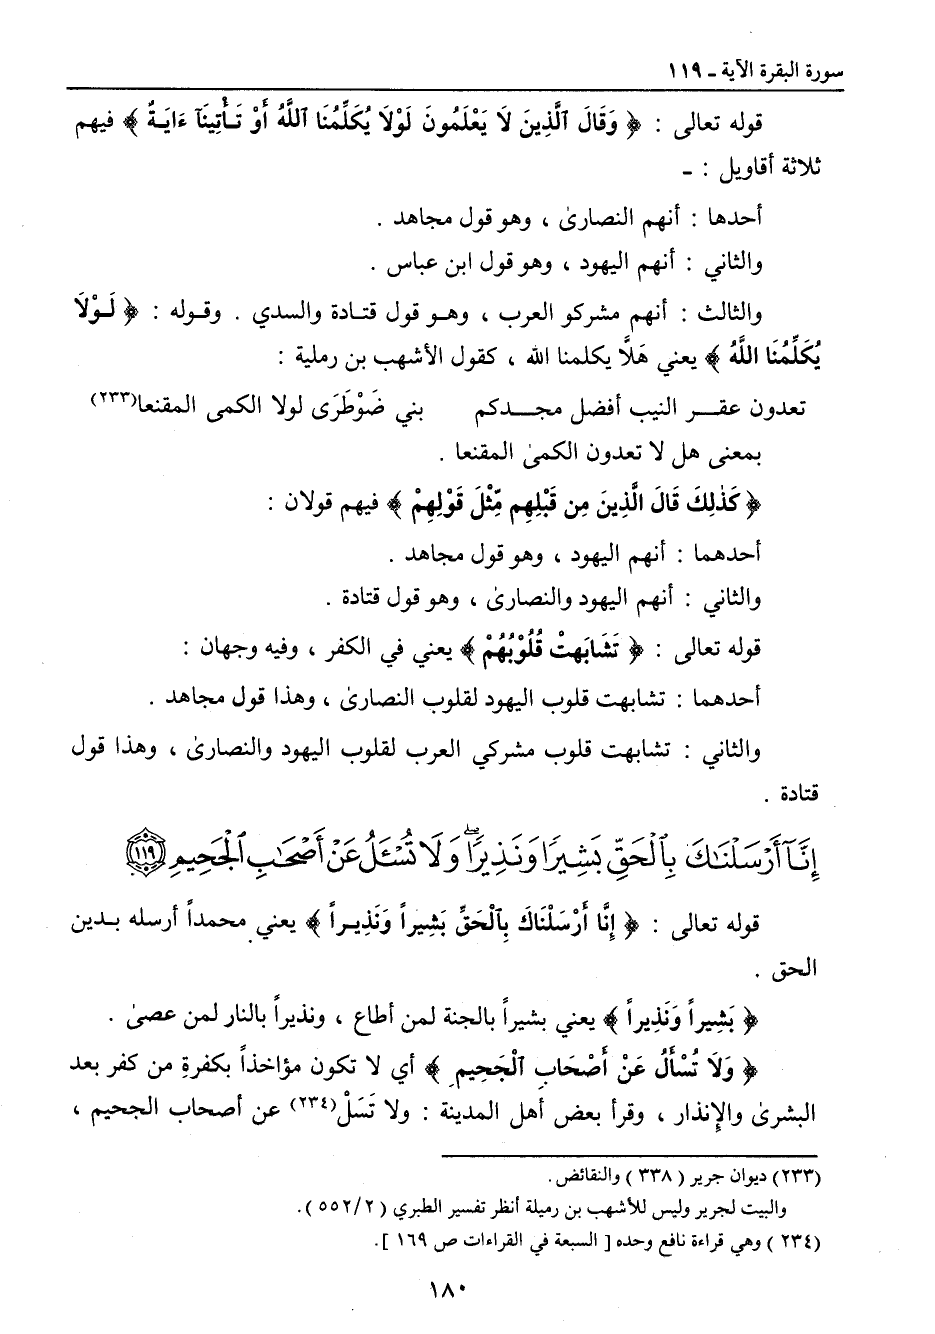 سورة البقرة الآية ـ ١١٩
قوله تعالى : ﴿ وَقَالَ ٱلَّذِينَ لَا يَعْلَمُونَ لَوْلَا يُكَلِّمُنَا ٱللَّهُ أَوْ تَـأْتِينَآ ءَايَـةٌ ﴾ فيهم
ثلاثة أقاويل : ـ
أحدها : أنهم النصارىٰ ، وهو قول مجاهد .
والثاني : أنهم اليهود ، وهو قول ابن عباس .
والثالث : أنهم مشركو العرب ، وهـو قول قتـادة والسدي . وقـوله : ﴿ لَـوْلَا
يُكَلِّمُنَا اللَّهُ ﴾ يعني هَلَّا يكلمنا الله ، كقول الأشهب بن رملية :
تعدون عقـــر النيب أفضل مجــدكم بني ضَوْطَرَى لولا الكمى المقنعا(٢٣٣)
بمعنى هل لا تعدون الكمىٰ المقنعا .
﴿ كَذٰلِكَ قَالَ الَّذِينَ مِن قَبْلِهِم مِّثْلَ قَوْلِهِمْ ﴾ فيهم قولان :
أحدهما : أنهم اليهود ، وهو قول مجاهد .
والثاني : أنهم اليهود والنصارىٰ ، وهو قول قتادة .
قوله تعالى : ﴿ تَشَابَهتْ قُلُوْبُهُمْ ﴾ يعني في الكفر ، وفيه وجهان :
أحدهما : تشابهت قلوب اليهود لقلوب النصارىٰ ، وهذا قول مجاهد .
والثاني : تشابهت قلوب مشركي العرب لقلوب اليهود والنصارىٰ ، وهذا قول
قتادة .
إِنَّآ أَرْسَلْنَـٰكَ بِٱلْحَقِّ بَشِيرًا وَنَذِيرًا ۖ وَلَا تُسْـَٔلُ عَنْ أَصْحَـٰبِ ٱلْجَحِيمِ ١١٩
قوله تعالى : ﴿ إِنَّا أَرْسَلْنَاكَ بِٱلْحَقِّ بَشِيراً وَنَذِيـراً ﴾ يعني محمداً أرسله بـدين
الحق .
﴿ بَشِيراً وَنَذِيراً ﴾ يعني بشيراً بالجنة لمن أطاع ، ونذيراً بالنار لمن عصىٰ .
﴿ وَلَا تُسْأَلُ عَنْ أَصْحَابِ ٱلْجَحِيمِ ﴾ أي لا تكون مؤاخذاً بكفرةِ من كفر بعد
البشرىٰ والإنذار ، وقرأ بعض أهل المدينة : ولا تَسَلْ(٢٣٤) عن أصحاب الجحيم ،
(٢٣٣) ديوان جرير ( ٣٣٨ ) والنقائض .
والبيت لجرير وليس للأشهب بن رميلة أنظر تفسير الطبري ( ٢/ ٥٥٢ ) .
(٢٣٤ ) وهي قراءة نافع وحده [ السبعة في القراءات ص ١٦٩ ] .
١٨٠